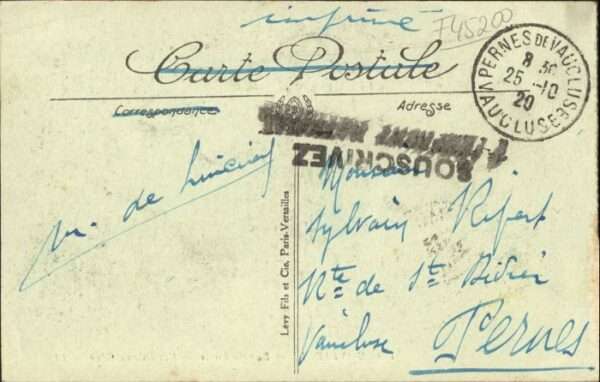 imprimé
F45200
Carte Postale
Correspondance
Adresse
PERNES DE VAUCLUSE
8 30
25 -10
20
VAUCLUSE
SOUSCRIVEZ
Monsieur
Sylvain Ripert
Rte de St Didier
Vaucluse Pernes
de
Lévy Fils et Cie, Paris-Versailles